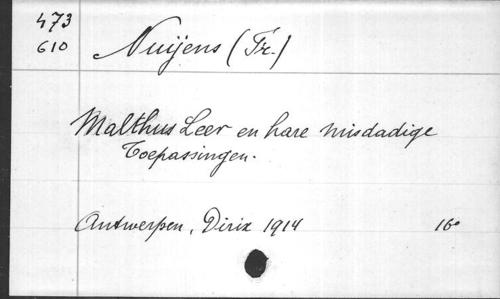 473
610
Nuijens (Fr.)
Malthus Leer en hare misdadige
Toepassingen.
Antwerpen, Dirix 1914 16°